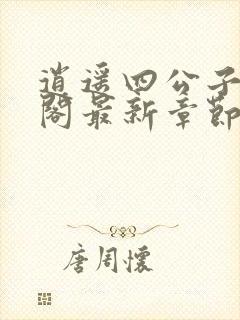 逍遥四公子
阁最新章节
唐周怀